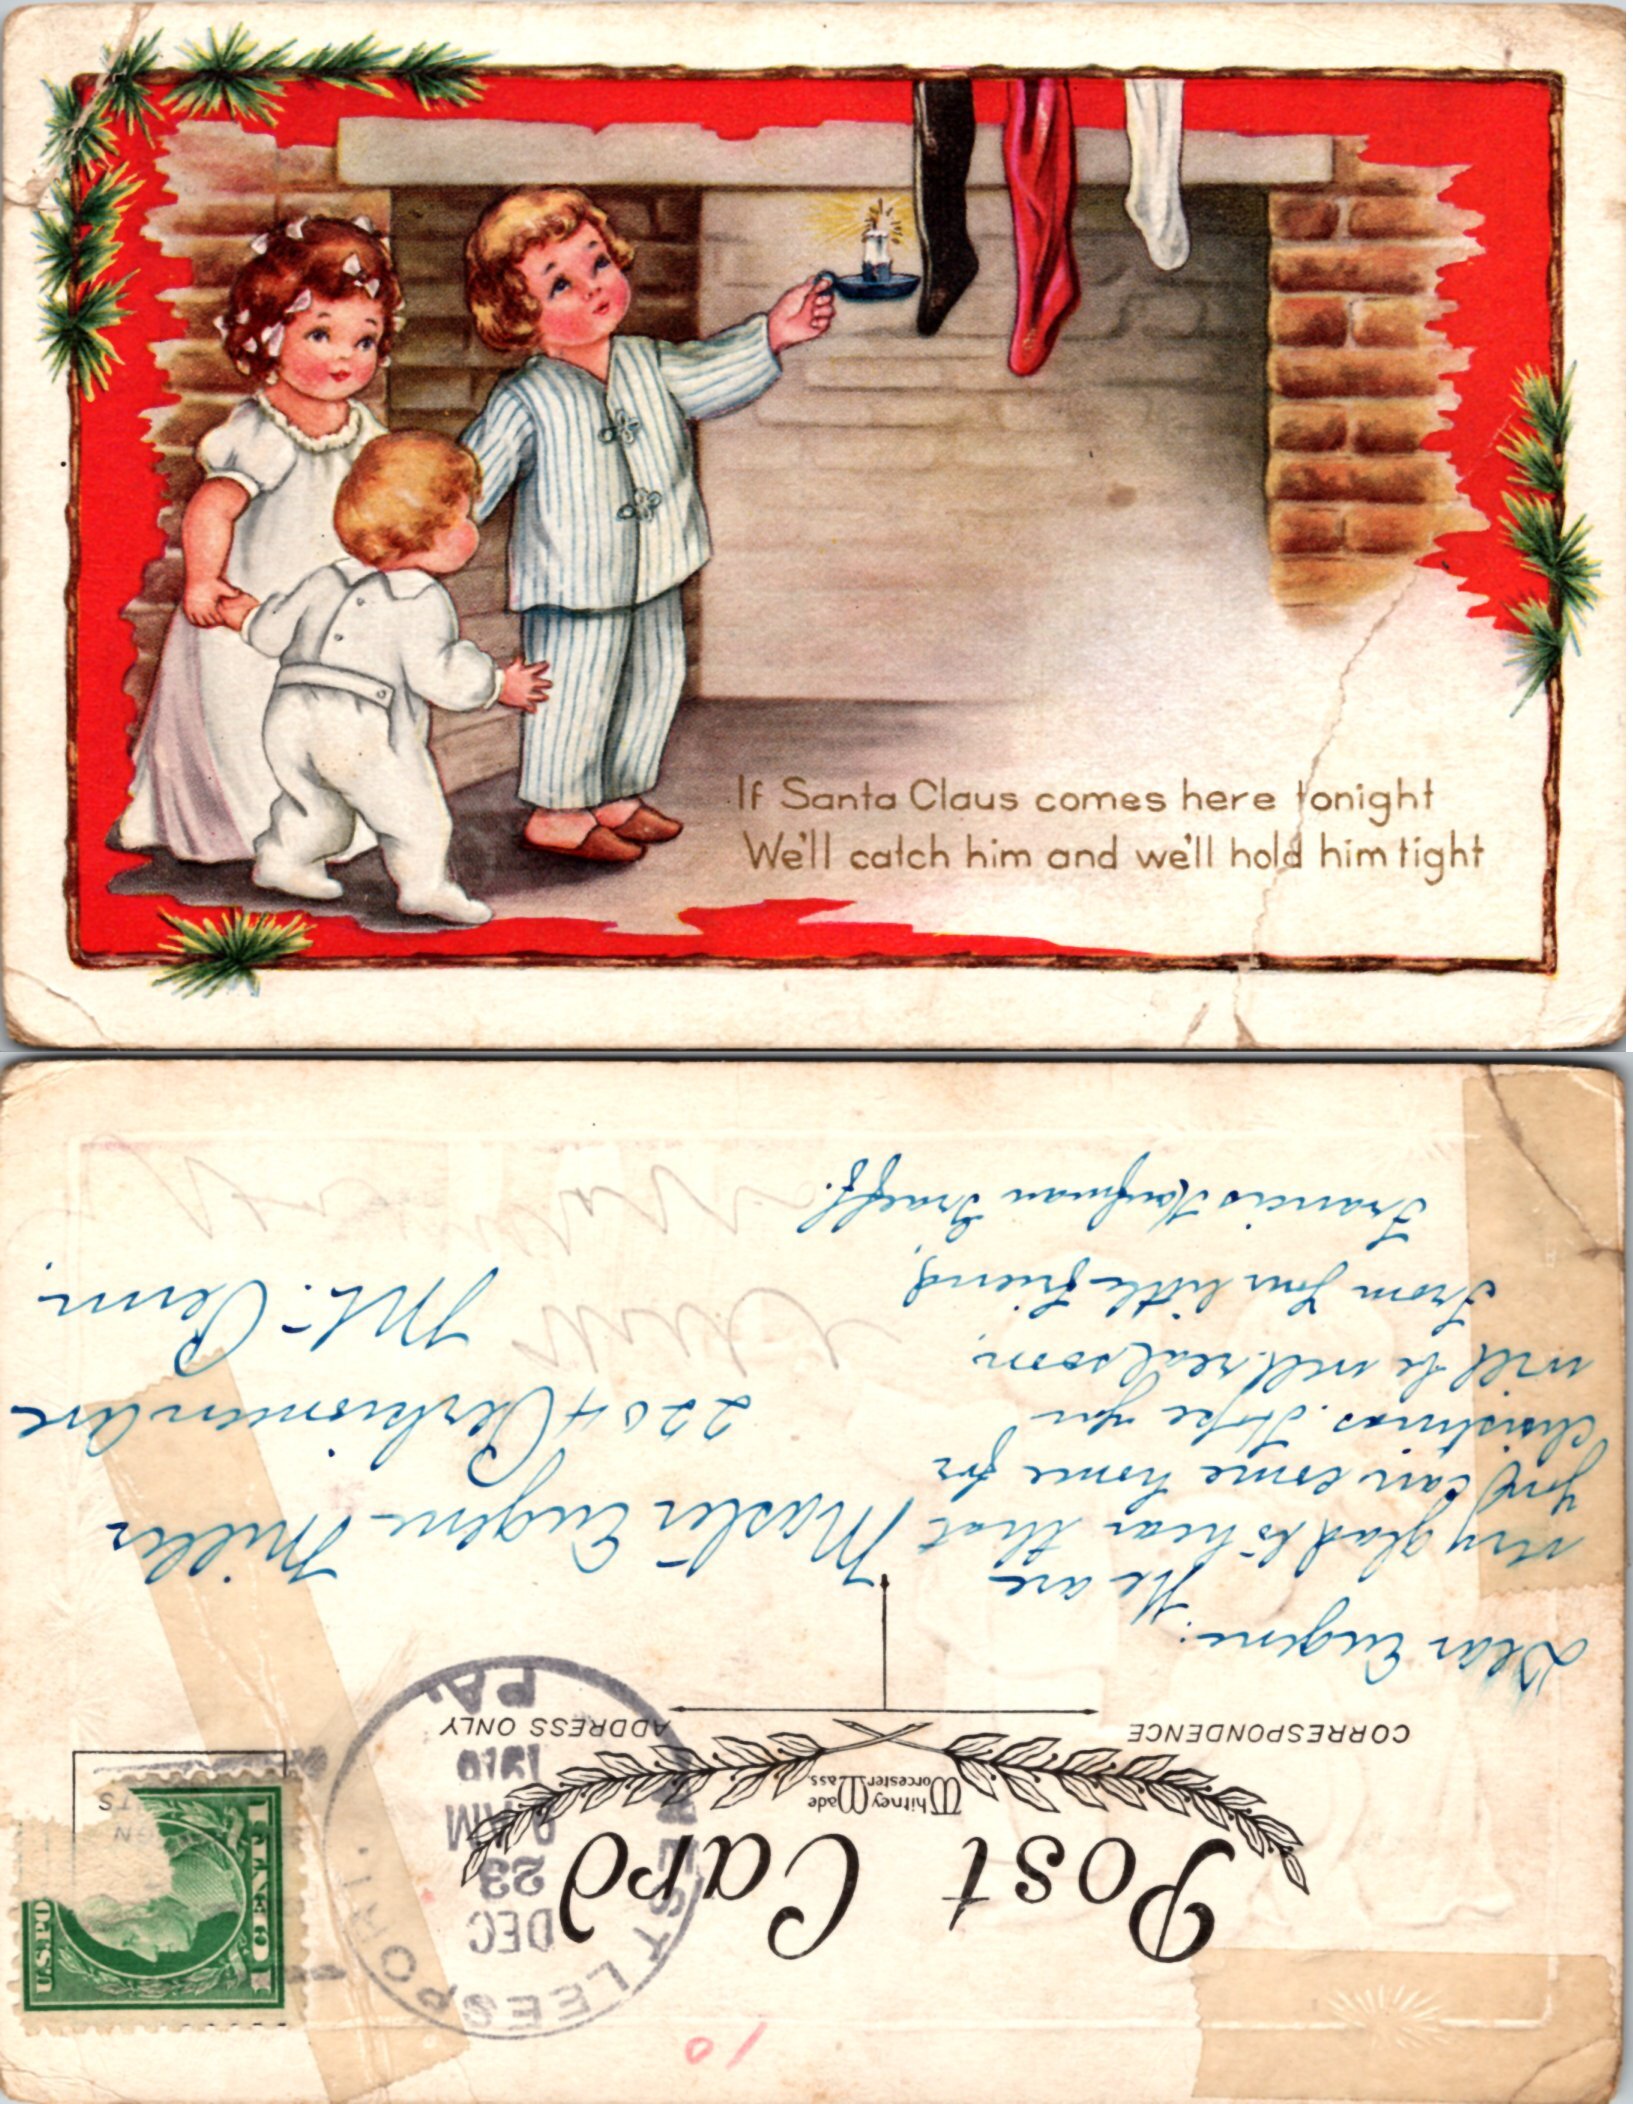 If Santa Claus comes here tonight
We'll catch him and we'll hold him tight
Post Card
Whitney Made
Worcester Mass.
CORRESPONDENCE
ADDRESS ONLY
WEST LEESPORT.
DEC
23
9 AM
PA.
U.S. PO
1 CENT 1
10
Dear Eugene:
We are
very glad to hear that
you can come home for
Christmas. Hope you
will be well real soon.
From your little friend,
Francis Kaufman Graeff.
Master Eugene Miller
2204 Perkiomen Ave
Mt. Penn.